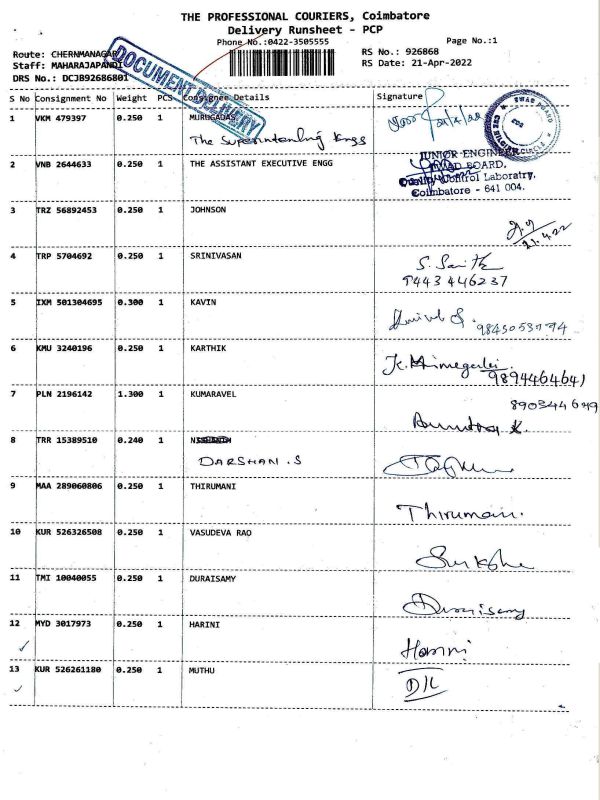 THE PROFESSIONAL COURIERS, Coimbatore
Delivery Runsheet - PCP
Phone No.:0422-3505555
Page No.:1
Route: CHERNMANAGAR
RS No.: 926868
Staff: MAHARAJAPANDI
RS Date: 21-Apr-2022
DRS No.: DCJB92686801
DOCUMENT DELIVERY
S No Consignment No Weight PCS Consignee Details Signature
1 VKM 479397 0.250 1 MURUGADAS
The Superintending Engg
2 VNB 2644633 0.250 1 THE ASSISTANT EXECUTIVE ENGG
JUNIOR ENGINEER
TWAD BOARD,
Quality Control Laboratry,
Coimbatore - 641 004.
3 TRZ 56892453 0.250 1 JOHNSON
21.4.22
4 TRP 5704692 0.250 1 SRINIVASAN
9443446237
5 IXM 501304695 0.300 1 KAVIN
6 KMU 3240196 0.250 1 KARTHIK
9894464641
7 PLN 2196142 1.300 1 KUMARAVEL
8903444649
8 TRR 15389510 0.240 1
DARSHAN.S
9 MAA 289060806 0.250 1 THIRUMANI
Thirumani.
10 KUR 526326508 0.250 1 VASUDEVA RAO
11 TMI 10040055 0.250 1 DURAISAMY
Duraisamy
12 MYD 3017973 0.250 1 HARINI
Harini
13 KUR 526261180 0.250 1 MUTHU